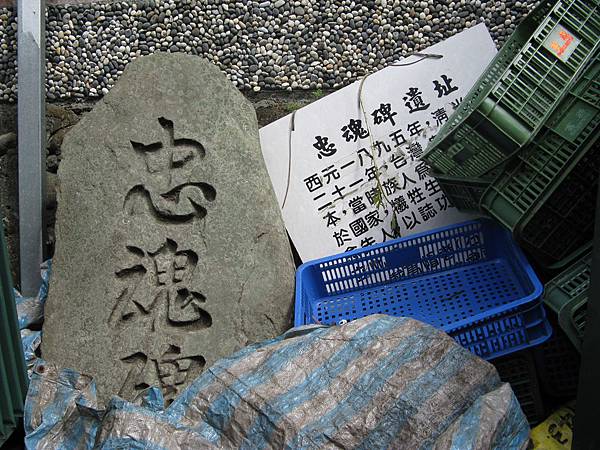 忠魂碑
忠魂碑遺址
西元一八九五年，清光
二十一年，台灣
本，當時族人為
於國家，犧牲生
念先人，以誌功